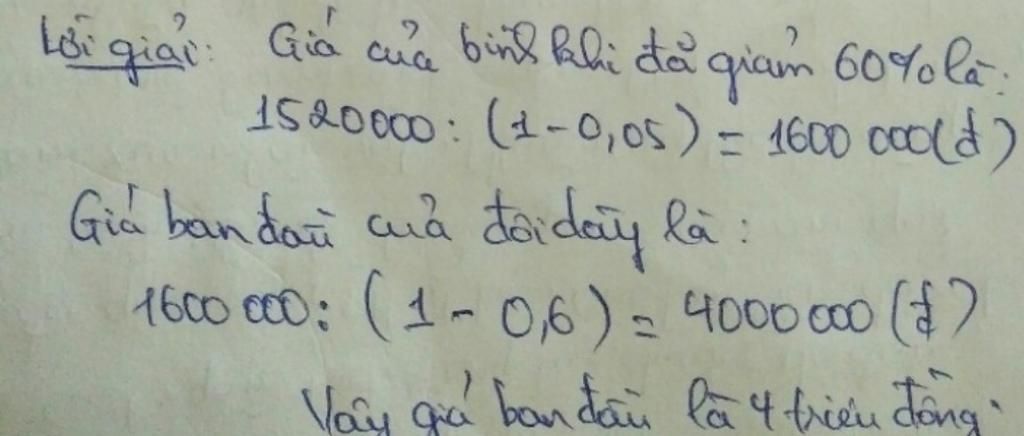 Lời giải: Giá của bình khi đã giảm 60% là:
1520000: (1-0,05) = 1600 000(đ)
Giá ban đầu của đôi dày là:
1600 000: (1 - 0,6) = 4000 000 (đ)
Vậy giá ban đầu là 4 triệu đồng.